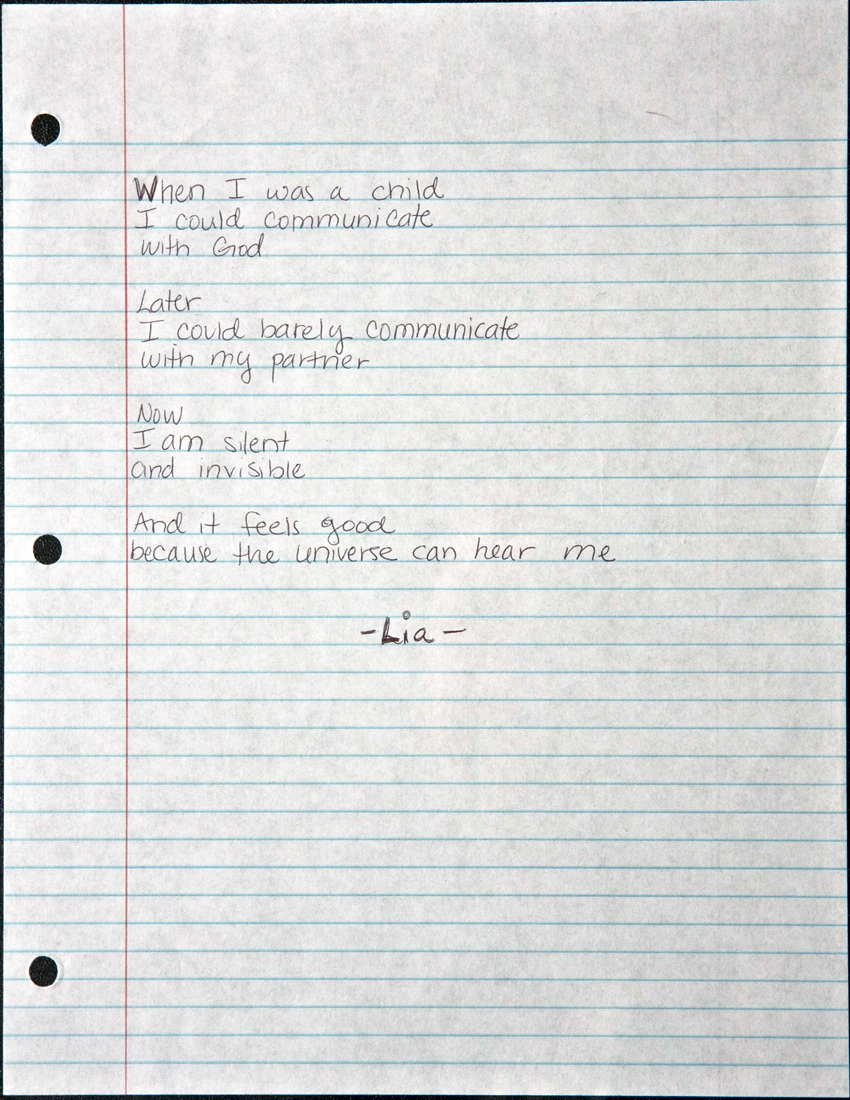 When I was a child
I could communicate
with God
Later
I could barely communicate
with my partner
Now
I am silent
and invisible
And it feels good
because the universe can hear me
-Lia-